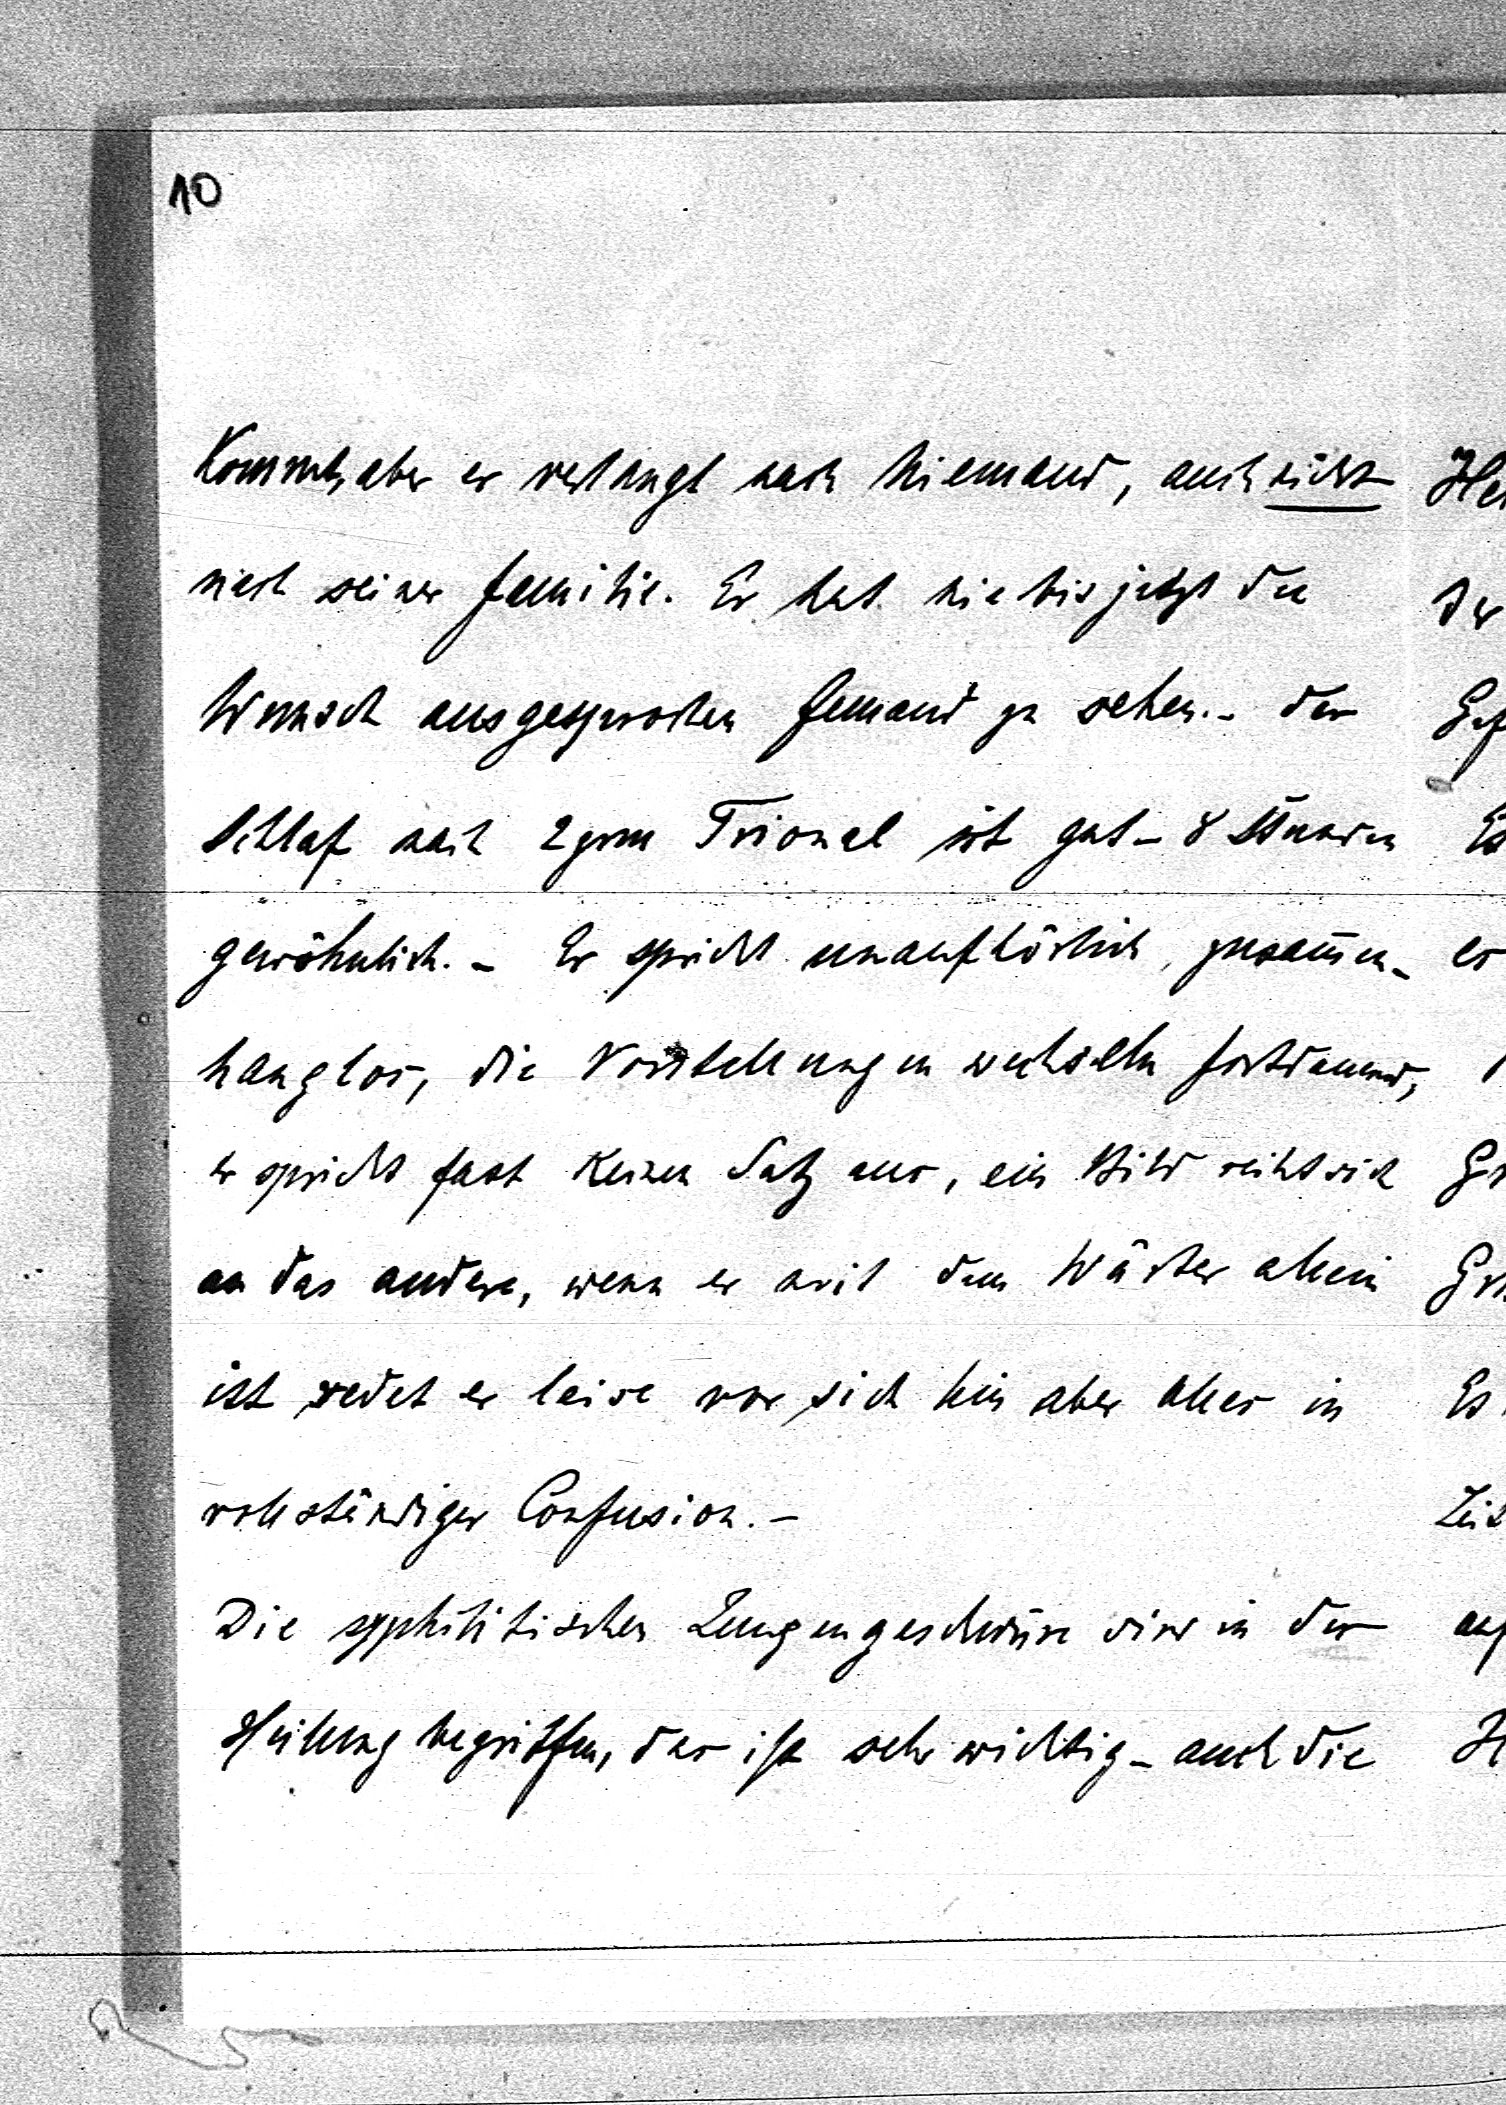 10
Kommt, aber er verlangt nach Niemand, auch nicht
nach seiner Familie. Er hat nie bis jetzt den
Wunsch ausgesprochen Jemand zu sehen.- Der
Schlaf nach 2 grm Trional ist gut - 8 Stunden
gewöhnlich. - Er spricht unaufhörlich, zusamen-
hanglos, die Vorstellungen wechseln fortdauernd,
er spricht fast keinen Satz aus, ein Bild reiht sich
an das andere, wenn er mit dem Wärter allein
ist redet er leise vor sich hin aber alles in
vollständiger Confusion. -
Die syphilitischen Zungengeschwüre sind in der
Heilung begriffen, das ist sehr wichtig - auch die
Der
Es
er
Es